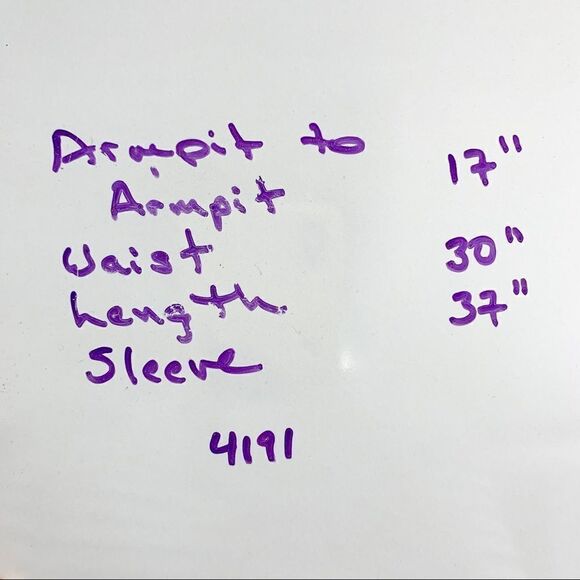 Armpit to 17"
Armpit
Waist 30"
Length 37"
Sleeve
4191